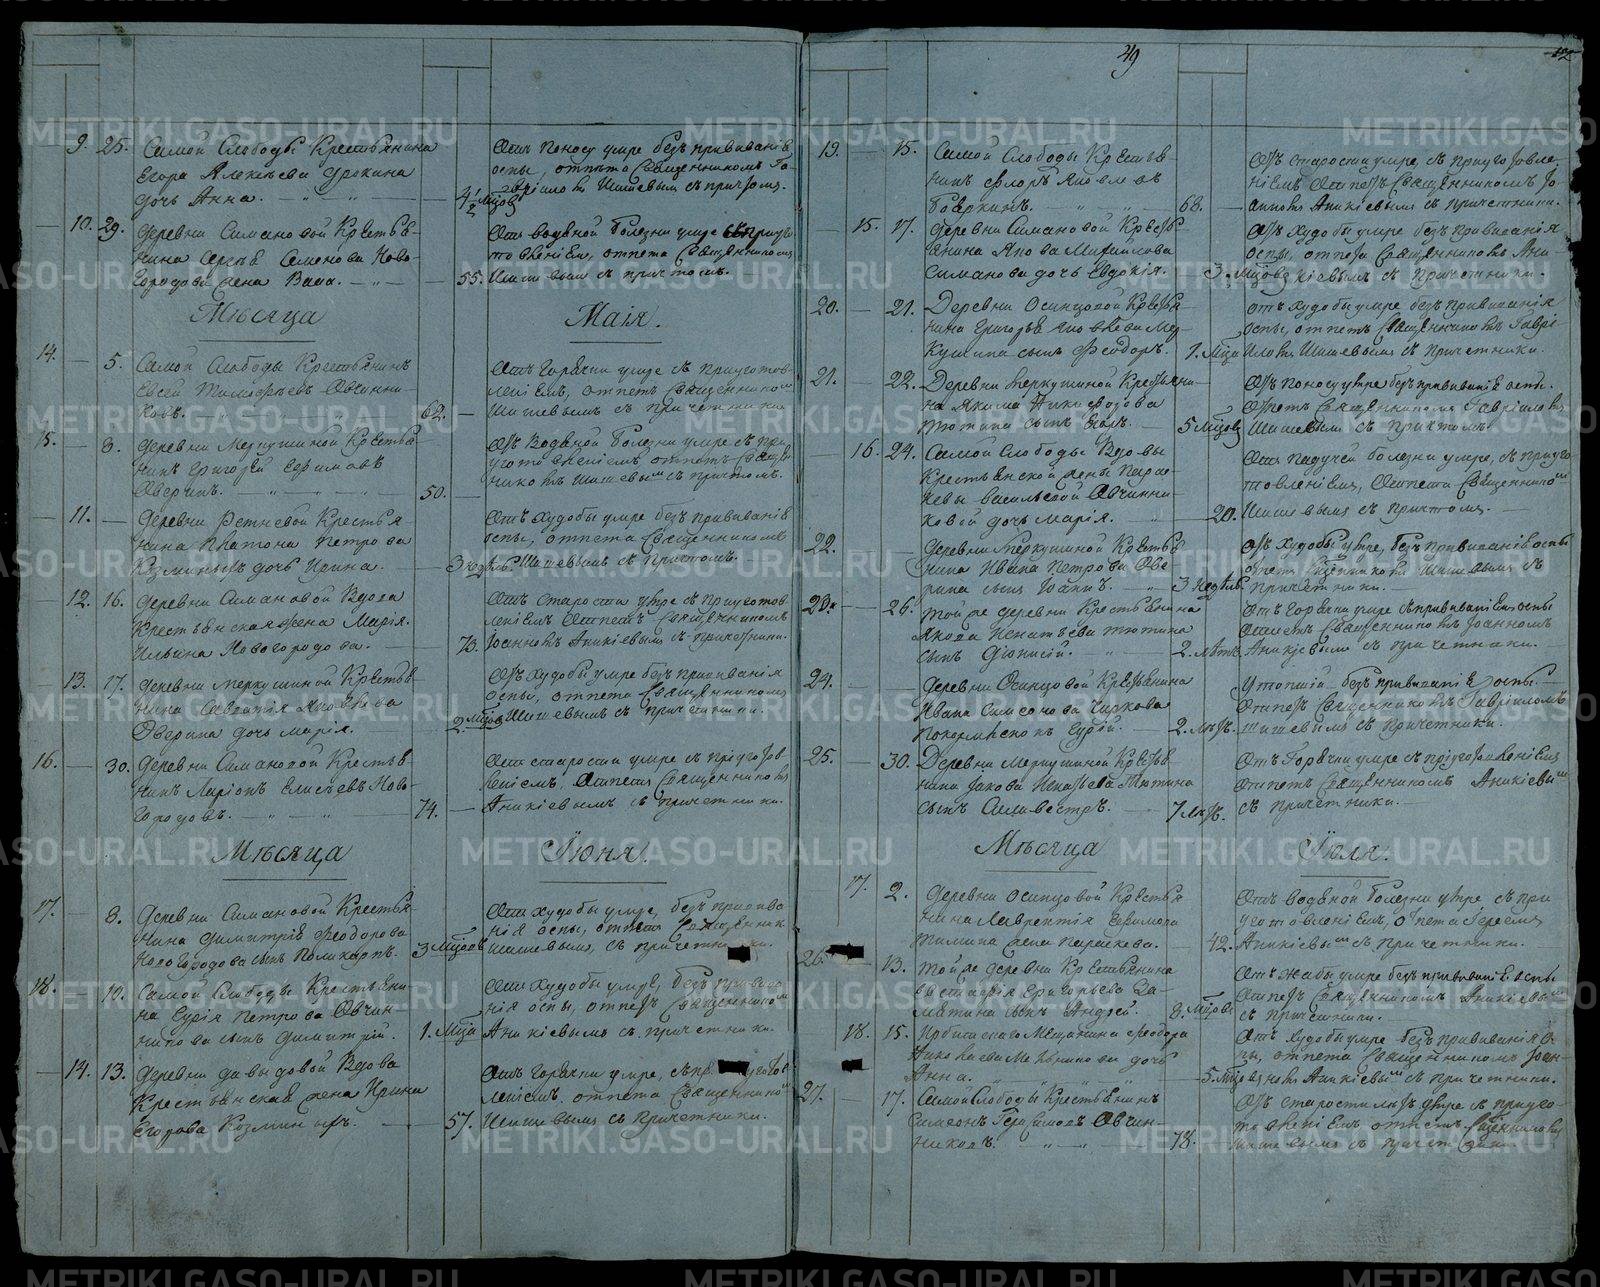 49
9. 25. Самой Слободы Крестьянина
Егора Алексѣева
дочь Анна.
4½ Мцов
Отъ поносу умре безъ прививанія
оспы, отпета Священникомъ Га-
вріиломъ Шишевымъ съ причтомъ.
10. 29. Деревни Симановой Крестья-
нина Сергѣя Семенова Ново-
городова жена Васа.
55.
Отъ водяной болезни умре съ приуго-
товленіем, отпета Священникомъ
Шишевымъ съ причтомъ.
Мѣсяца Маія.
14. 5. Самой Слободы Крестьянинъ
Евсей Тимофѣевъ Овчинни-
ковъ.
62.
Отъ Горячки умре съ приуготов-
леніемъ, отпетъ Священникомъ
Шишевымъ съ причетники
15. 8. Деревни Меркушиной Крестья-
нинъ Григорей Ефимовъ
Оверинъ.
50.
Отъ Водяной болезни умре съ при-
уготовленіемъ отпетъ Священ-
никомъ Шишевымъ съ причтомъ.
11. Деревни Ретневой Крестья-
нина Платона Петрова
дочь Ирина.
3 недѣль
Отъ худобы умре безъ прививанія
оспы, отпета Священникомъ
Шишевымъ съ причтомъ.
12. 16. Деревни Симановой Вдова
Крестьянская жена Марія
Ильина Новогородова.
73.
Отъ старости умре съ приуготов-
леніемъ отпета Священникомъ
Іоанномъ Аникіевымъ съ причетники.
13. 17. Деревни Меркушиной Крестья-
нина Савватія Яковлева
Оверина дочь Марія.
2. Мцов
Отъ худобы умре безъ прививанія
оспы, отпета Священникомъ
Шишевымъ съ причетники.
16. 30. Деревни Симановой Крестья-
нинъ Ларіонъ Елисѣевъ Ново-
городовъ.
74.
Отъ старости умре съ приуготов-
леніемъ, отпетъ Священникомъ
Аникіевымъ съ причетники.
Мѣсяца Іюня.
17. 8. Деревни Симановой Крестья-
нина Димитрія Феодорова
Новогородова сынъ Поликарпъ.
3 Мцов
Отъ худобы умре, безъ привива-
нія оспы, отпетъ Священник
Шишевымъ, съ причетники.
18. 10. Самой Слободы Крестьяни-
на Сурія Петрова Овчин-
никова сынъ Димитрій.
1. Мца
Отъ худобы умре, безъ привива-
нія оспы, отпетъ Священникомъ
Аникіевымъ съ причетники.
14. 13. Деревни Давыдовой Вдова
Крестьянская жена Ирина
Егорова
57.
Отъ горячки умре, съ приуготов-
леніемъ отпета Священникомъ
Шишевымъ съ причетники.
19. 15. Самой Слободы Крестья-
нинъ Флоръ Яковлевъ
Бояркинъ.
68.
Отъ старости умре, съ приуготовле-
ніемъ отпетъ Священникомъ Іо-
анномъ Аникіевымъ съ причетники.
15. 17. Деревни Симановой Кресть-
янина Якова
Симанова дочь Евдокія.
3. Мцов
Отъ худобы умре безъ прививанія
оспы, отпета Священникомъ Ани-
кіевымъ съ причетники.
20. 21. Деревни Осинцовой Крестья-
нина Григорья Яковлева Мер-
кушина сынъ Феодоръ.
1. Мца
отъ худобы умре безъ прививанія
оспы, отпетъ Священникомъ Гаврі-
иломъ Шишевымъ съ причетники.
21. 22. Деревни Меркушиной Крестьяни-
на Якима Никифорова
Тютина сынъ
5 Мцов
Отъ поносу умре безъ прививанія оспы.
Отпетъ Священникомъ Гавріиломъ
Шишевымъ съ причтомъ
16. 24. Самой Слободы Вдовы
Крестьянской жены Парас-
кевы Васильевой Овчинни-
ковой дочь Марія.
20.
Отъ падучей болезни умре, съ приуго-
товленіемъ, отпета Священникомъ
Шишевымъ съ причтомъ.
22. Деревни Меркушиной Крестья-
нина Ивана Петрова Ове-
рина сынъ Іоаннъ.
3 Недѣль.
отъ худобы умре, безъ прививанія оспы
отпетъ Священникомъ Шишевымъ съ
причетники.
23. 26. Той же деревни Крестьянина
Якова Игнатьева Тютина
сынъ Діонисій.
2. лѣтъ
отъ Горячки умре съ прививаніемъ оспы
отпетъ Священникомъ Іоанномъ
Аникіевымъ съ причетники.
24. Деревни Осинцовой Крестьянина
Ивана Самсонова Чиркова
Сурій.
2. лѣтъ.
Утопшій безъ прививанія оспы.
Отпетъ Священникомъ Гавріиломъ
Шишевымъ съ причетники.
25. 30. Деревни Меркушиной Крестья-
нина Іакова Игнатьева Тютина
сынъ Силивестръ.
7 лѣтъ.
Отъ Горячки умре съ приуготовленіемъ
Отпетъ Священникомъ Аникіевымъ
съ причетники.
Мѣсяца Іюля.
17. 2. Деревни Осинцовой Крестья-
нина Лаврентія Ефимова
Тимина жена Параскева.
42.
Отъ водяной болезни умре, съ при-
уготовленіемъ, отпета Іереемъ
Аникіевымъ съ причетники.
26. 13. Той же деревни Крестьянина
Евстафія Григорьева За-
матина сынъ Андрей.
8. Мцовъ
Отъ жабы умре безъ прививанія оспы
Отпетъ Священникомъ Аникіевымъ
съ причетники.
18. 15. Ирбитскаго Мещанина Феодора
Николаева Мельникова дочь
Анна.
5. Мцов
Отъ худобы умре безъ прививанія о-
пы, отпета Священникомъ Іоан-
номъ Аникіевымъ съ причетники.
27. 17. Самой Слободы Крестьянинъ
Симеонъ Герасимовъ Овчин-
никовъ.
78.
Отъ старости лѣтъ умре съ приуго-
товленіемъ отпетъ Священникомъ
Шишевымъ съ причетники
METRIKI.GASO-URAL.RU